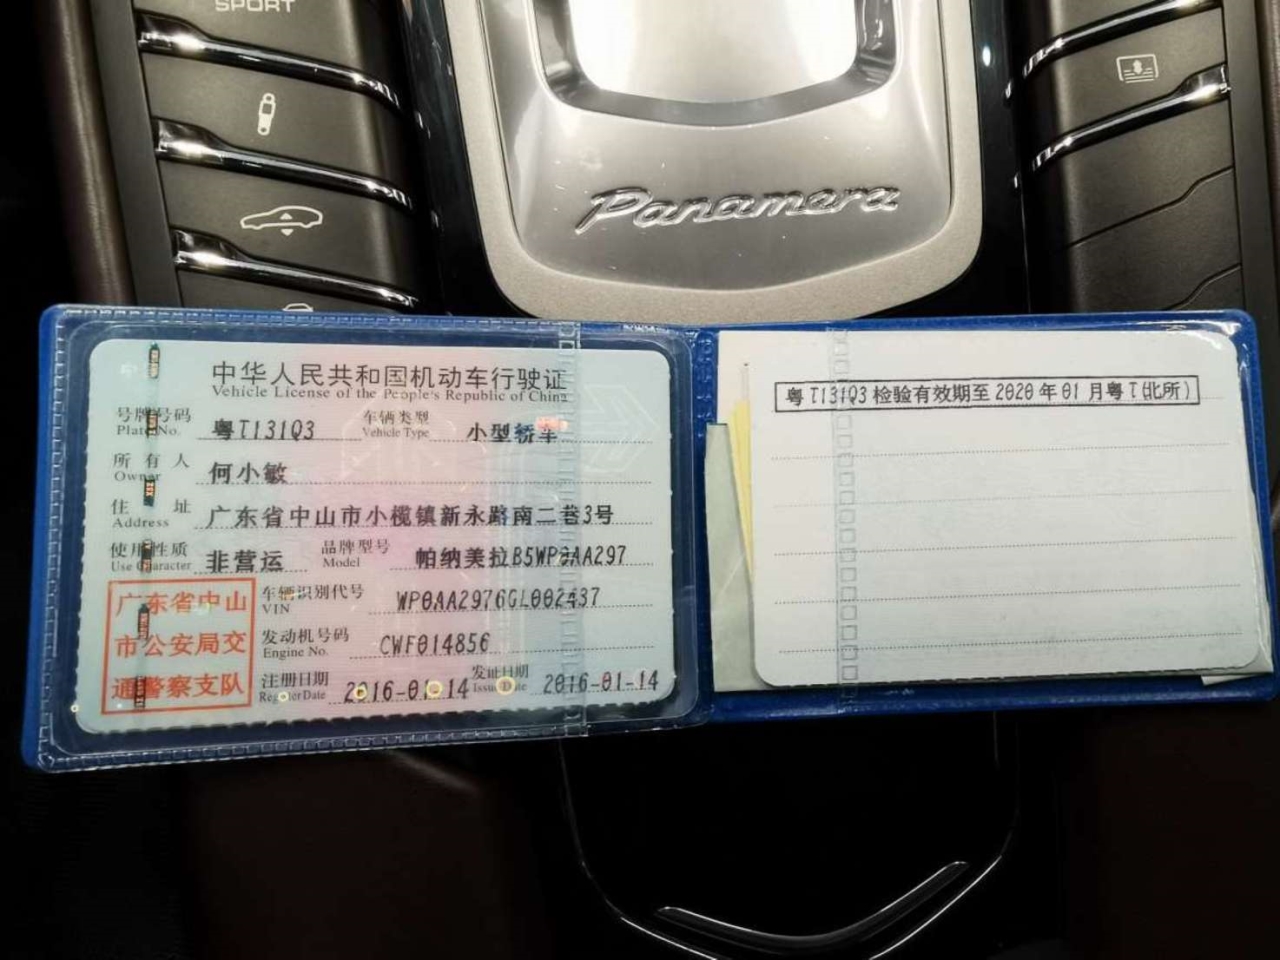 SPORT
Panamera
中华人民共和国机动车行驶证
Vehicle License of the People's Republic of China
号牌号码 粤T131Q3 车辆类型 小型轿车
Plate No. Vehicle Type
所有人 何小敏
Owner
住址 广东省中山市小榄镇新永路南二巷3号
Address
使用性质 非营运 品牌型号 帕纳美拉B5WP0AA297
Use Character Model
广东省中山
市公安局交
通警察支队
车辆识别代号 WP0AA2976GL002437
VIN
发动机号码 CWF014856
Engine No.
注册日期 2016-01-14 发证日期 2016-01-14
Register Date Issue Date
粤T131Q3检验有效期至2020年01月粤T(北所)